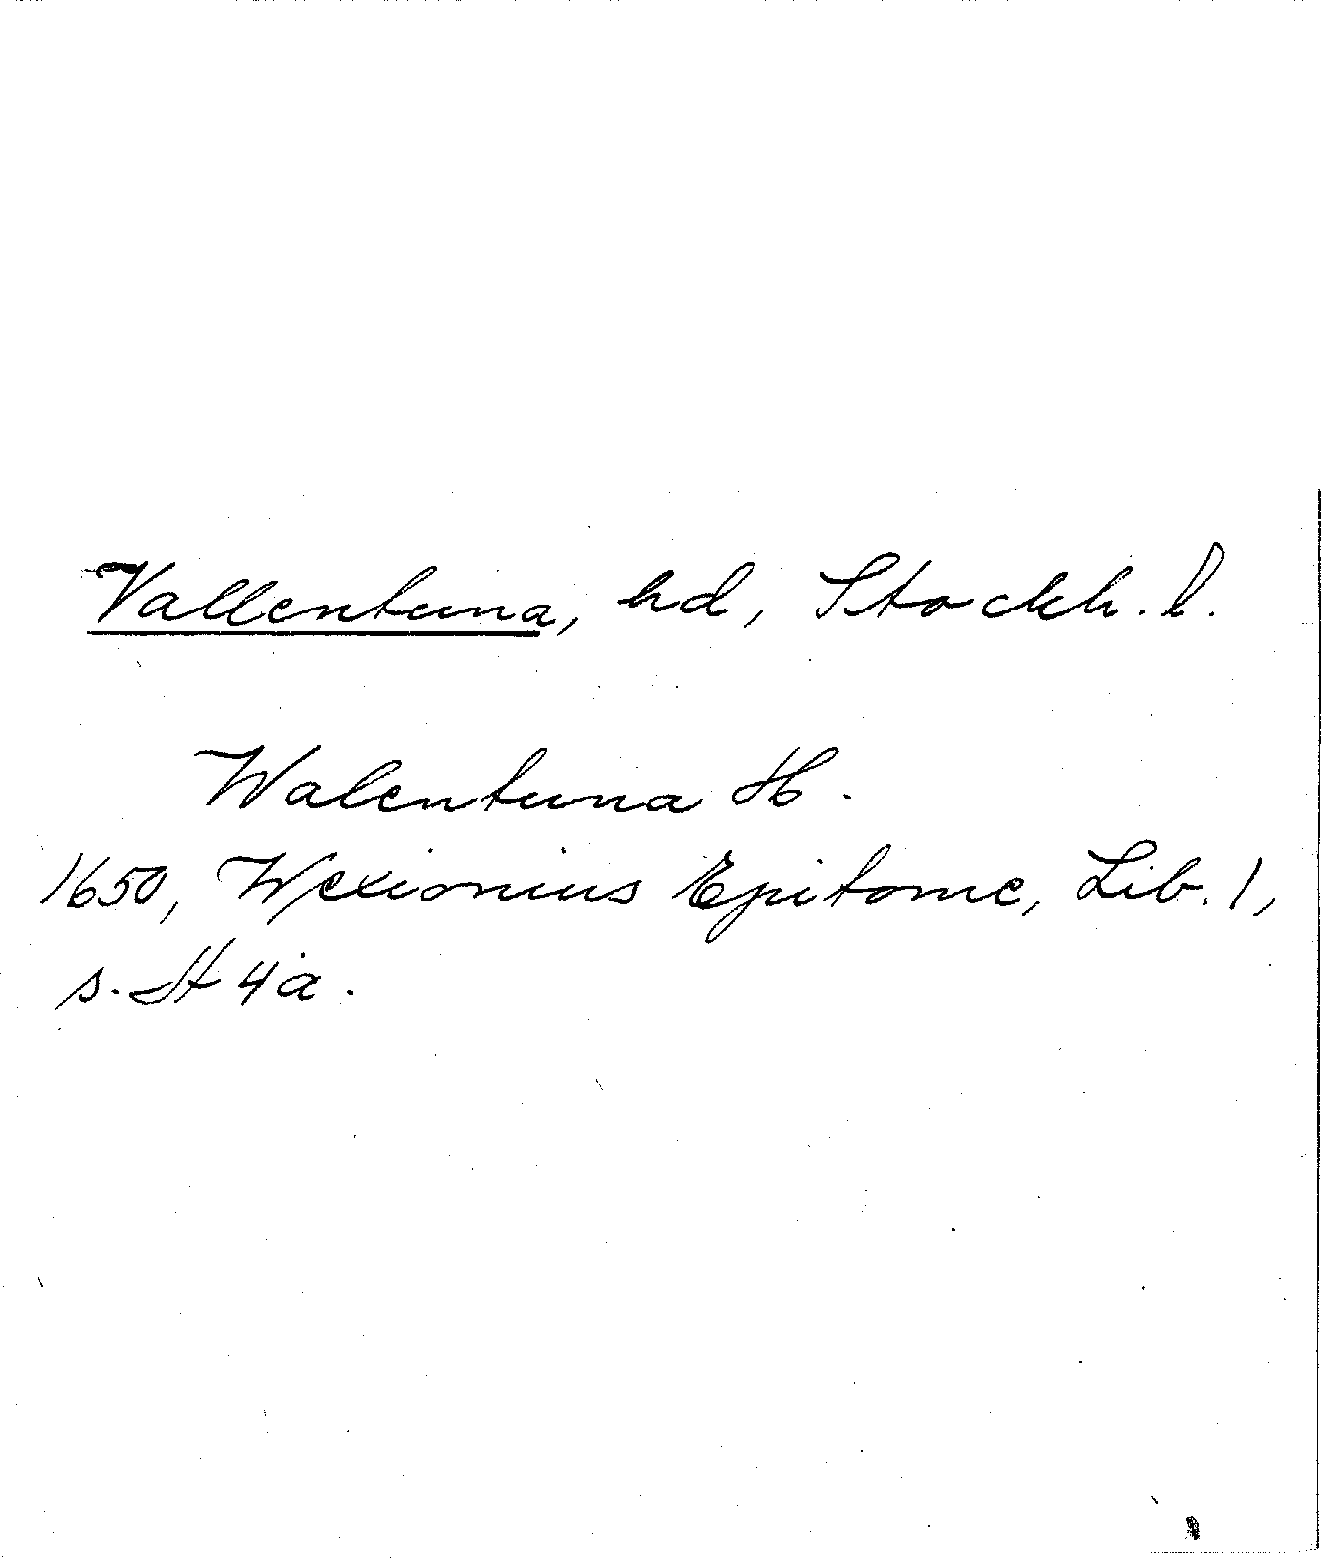 Vallentuna, hd, Stockh. l.
Walentuna H.
1650, Wexionius Epitome, Lib. 1,
s. H 4 a.